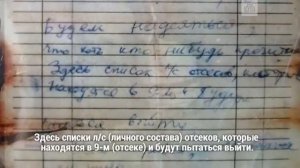 Будем надеяться
что хоть кто-нибудь прочитает
Здесь список л/с отсеков, которые
находятся в 9-м и будут
пытаться выйти.
Здесь списки л/с (личного состава) отсеков, которые
находятся в 9-м (отсеке) и будут пытаться выйти.